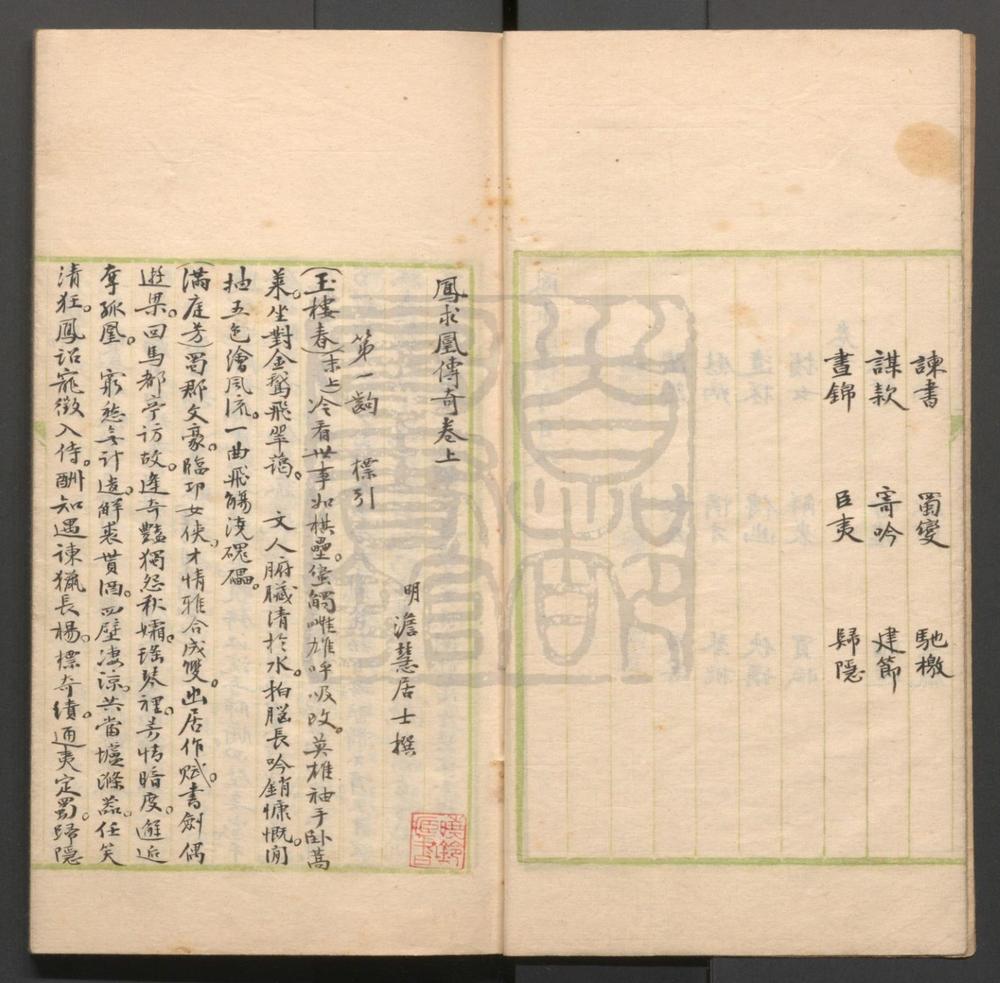 諫書　蜀變　馳檄
謀款　寄吟　建節
晝錦　臣夷　歸隱
鳳求凰傳奇卷上
明　澹慧居士撰
第一齣　標引
(玉樓春)末上冷看世事如棋壘。蛮觸雌雄呼吸改。英雄袖手卧蒿
萊。坐對金鷔飛翠藹。　文人腑臟清於水。拍腦長吟銷慷慨。閒
抽五色繪風流。一曲飛觴澆磈礧。
(滿庭芳)蜀郡文豪。臨邛女俠。才情雅合成雙。出居作賦。書劍偶
遊梁。回馬都亭訪故。逢奇豔獨怨秋孀。瑤琴裡。芳情暗度。邂逅
牽孤凰。　窮愁無計遣。解裘貰酒。四壁凄涼。共當壚滌器。任笑
清狂。鳳詔寵徵入侍。酬知遇諫獵長楊。標奇績。通夷定蜀。歸隱